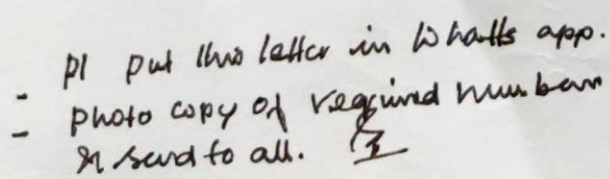 pl put this letter in Whatts app.
- photo copy of required number
- & send to all.